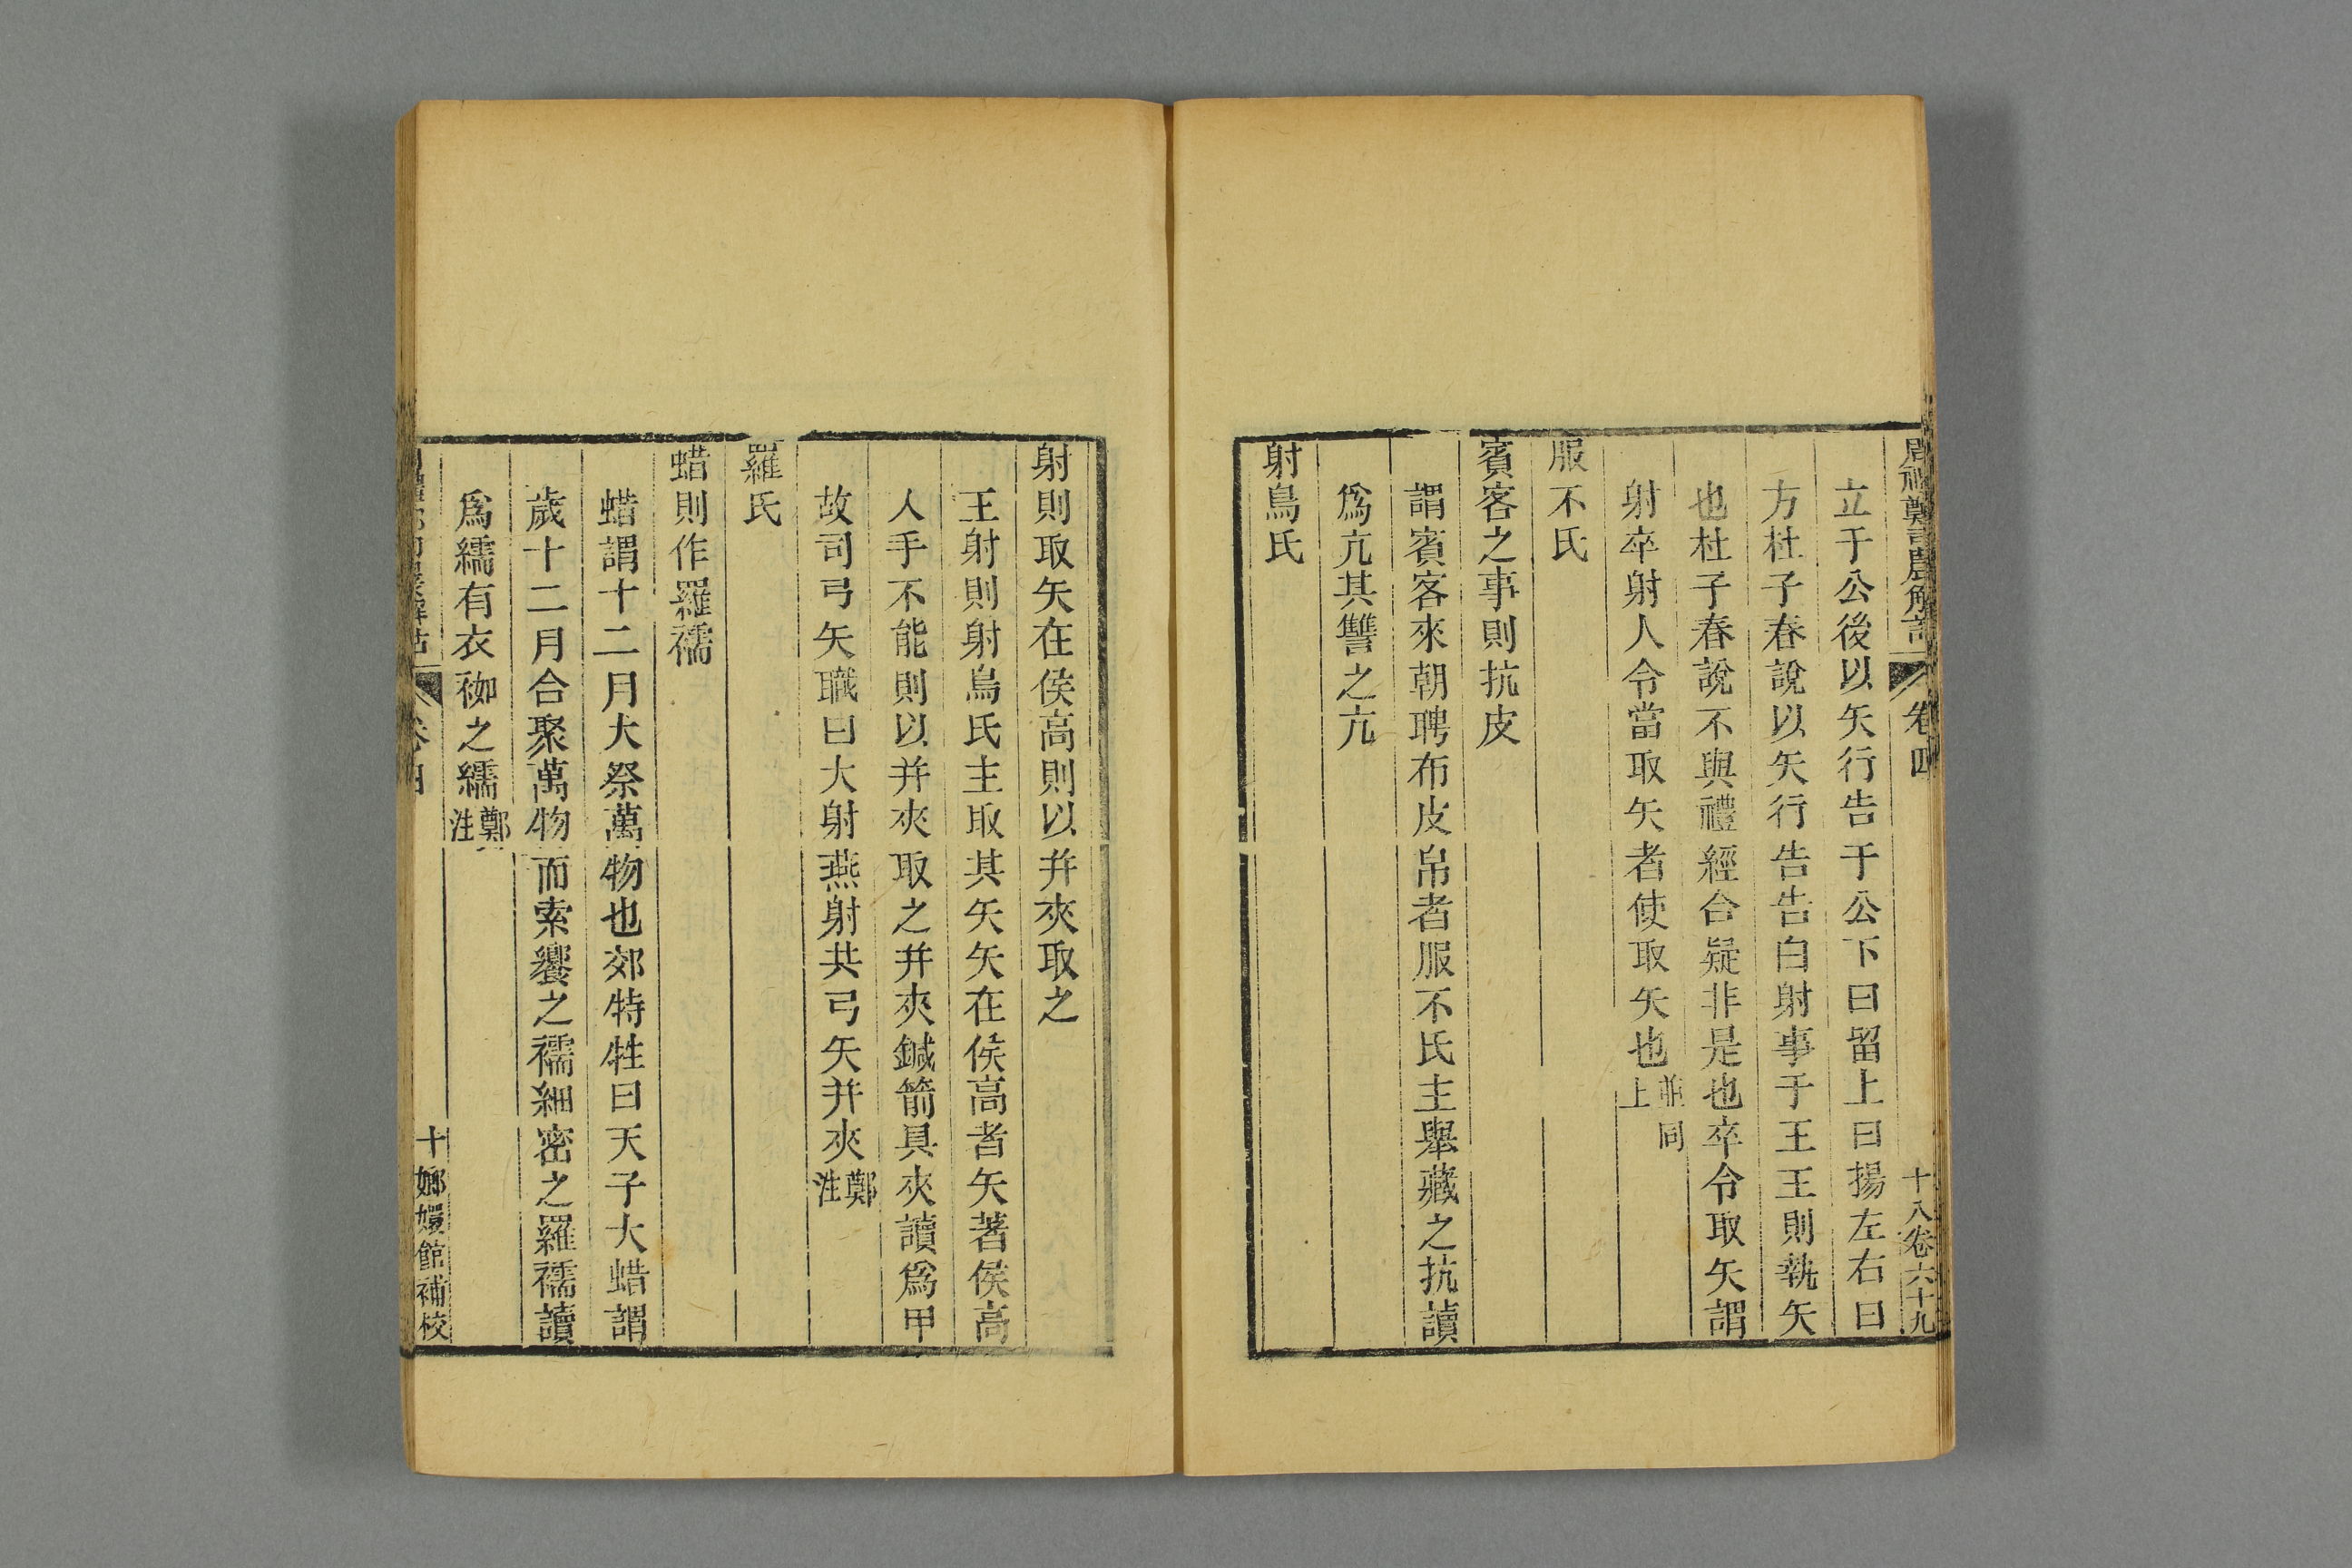 周禮鄭司農解詁 卷四 十八卷六十九
立于公後以矢行告于公下曰留上曰揚左右曰
方杜子春說以矢行告告白射事于王王則執矢
也杜子春說不與禮經合疑非是也卒令取矢謂
射卒射人令當取矢者使取矢也並同上
服不氏
賓客之事則抗皮
謂賓客來朝聘布皮帛者服不氏主舉藏之抗讀
爲亢其讐之亢
射鳥氏
射則取矢在侯高則以并夾取之
王射則射鳥氏主取其矢矢在侯高者矢著侯高
人手不能則以并夾取之并夾鍼箭具夾讀爲甲
故司弓矢職曰大射燕射共弓矢并夾鄭注
羅氏
蜡則作羅襦
蜡謂十二月大祭萬物也郊特牲曰天子大蜡謂
歲十二月合聚萬物而索饗之襦細密之羅襦讀
爲繻有衣袽之繻鄭注
卷四 十 嫏嬛館補校